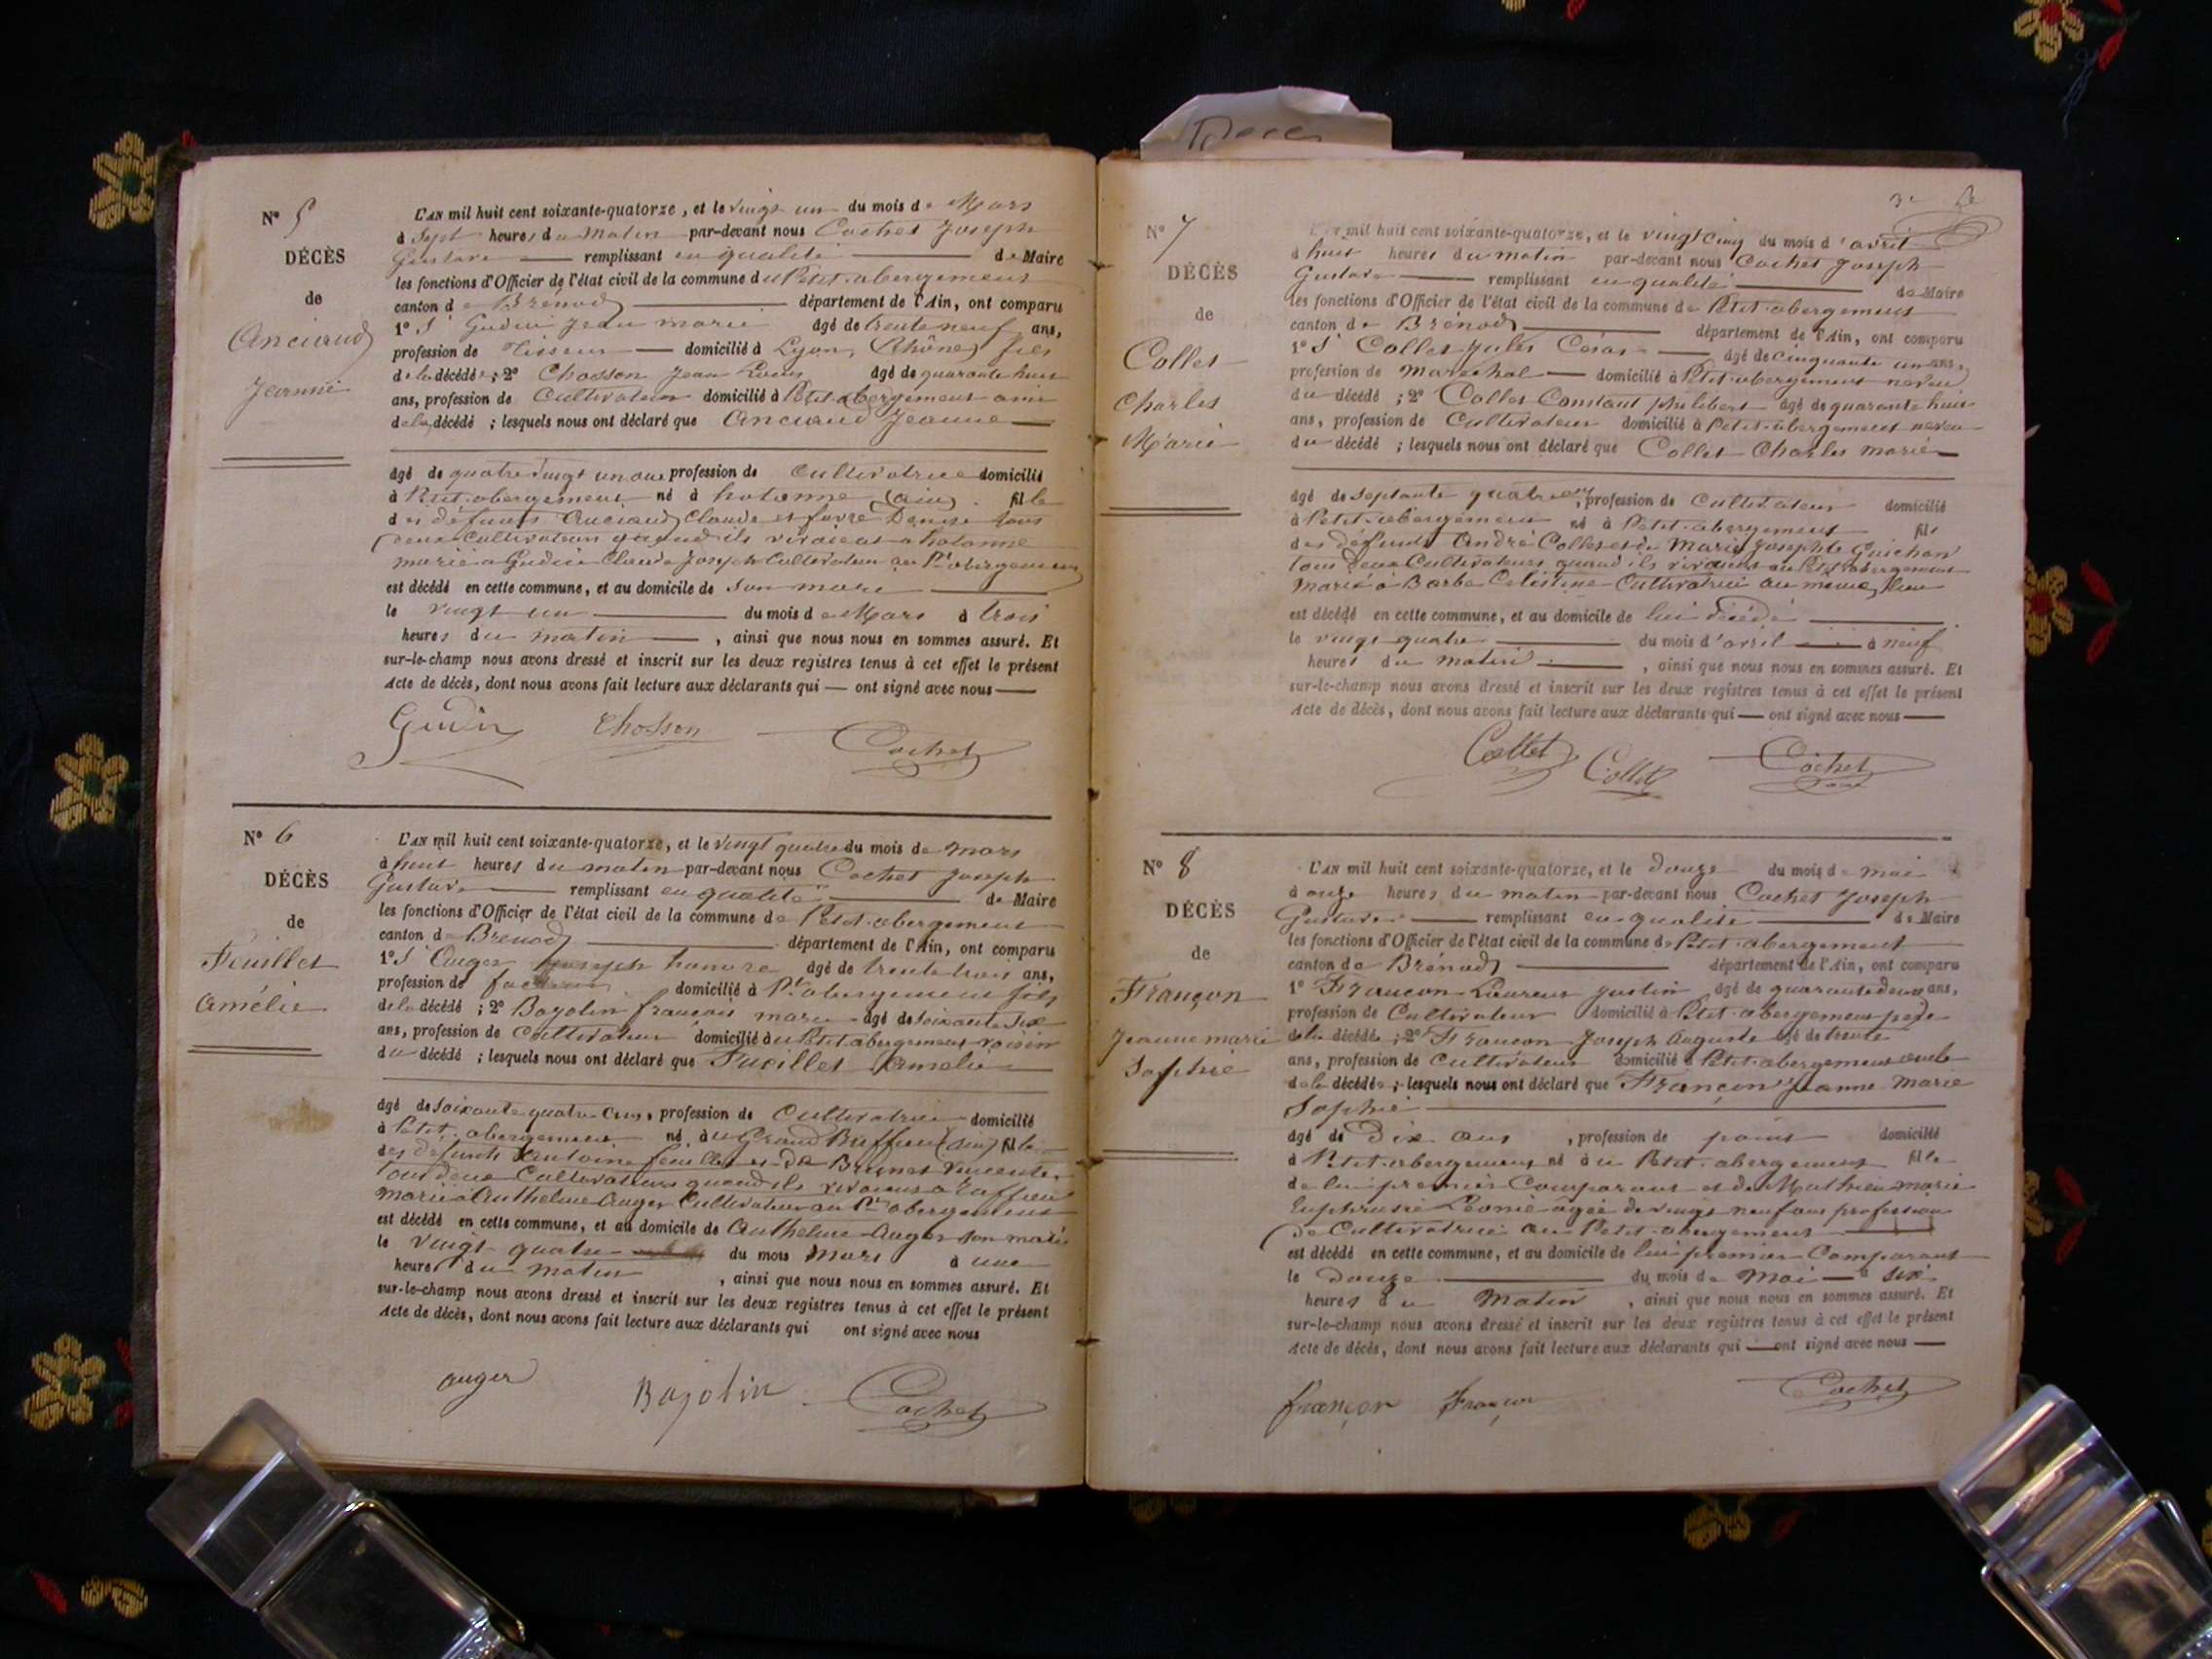 Décès
N° 5
DÉCÈS
de
Anciaud
Jeanne
L'AN mil huit cent soixante-quatorze, et le vingt un du mois de Mars
à Sept heures du Matin par-devant nous Cochet Joseph
Gustave — remplissant en qualité — de Maire
les fonctions d'Officier de l'état civil de la commune du Petit-abergement
canton de Brénod — département de l'Ain, ont comparu
1° S Gudin Jean marie âgé de trente neuf ans,
profession de Tisseur — domicilié à Lyon (Rhône) fils
de la décédée ; 2° Chosson Jean Louis âgé de quarante huit
ans, profession de Cultivateur domicilié à Petit-abergement ami
de la décédé ; lesquels nous ont déclaré que Anciaud Jeanne —
âgé de quatre vingt un ans profession de Cultivatrice domicilié
à Petit-abergement né à hotonne (ain) fille
des défunts Anciaud Claude et favre Denise tous
deux Cultivateurs quand ils vivaient a hotonne
mariée a Gudin Claude Joseph Cultivateur au Pt abergement
est décédé en cette commune, et au domicile de Son mari —
le vingt un — du mois de Mars à trois
heures du matin — , ainsi que nous nous en sommes assuré. Et
sur-le-champ nous avons dressé et inscrit sur les deux registres tenus à cet effet le présent
Acte de décès, dont nous avons fait lecture aux déclarants qui — ont signé avec nous —
Gudin Chosson Cochet
N° 6
DÉCÈS
de
Feuillet
Amélie
L'AN mil huit cent soixante-quatorze, et le vingt quatre du mois de mars
à huit heures du matin par-devant nous Cochet Joseph
Gustave — remplissant en qualité — de Maire
les fonctions d'Officier de l'état civil de la commune de Petit-abergement
canton de Brenod — département de l'Ain, ont comparu
1° S Auger Joseph honore âgé de trente trois ans,
profession de facteur domicilié à Pt abergement fils
de la décédé ; 2° Bozolin françois marie âgé de soixante six
ans, profession de Cultivateur domicilié au Petit abergement voisin
du décédé ; lesquels nous ont déclaré que Fueillet Amelie —
âgé de soixante quatre ans, profession de Cultivatrice domicilié
à Petit-abergement né au Grand Buffieu (ain) fille
des defunts Antoine feuillet et de Brunet Vincente
tous deux Cultivateurs quand ils vivaient a
mariée a Anthelme Auger Cultivateur au Pt abergement
est décédé en cette commune, et au domicile de Anthelme Auger son mari
le vingt quatre du mois Mars à une
heures du matin , ainsi que nous nous en sommes assuré. Et
sur-le-champ nous avons dressé et inscrit sur les deux registres tenus à cet effet le présent
Acte de décès, dont nous avons fait lecture aux déclarants qui ont signé avec nous
auger Bozolin Cochet
N° 7
DÉCÈS
de
Collet
Charles
Marie
L'AN mil huit cent soixante-quatorze, et le vingt Cinq du mois d'avril
à huit heures du matin par-devant nous Cochet Joseph
Gustave — remplissant en qualité — de Maire
les fonctions d'Officier de l'état civil de la commune de Petit-abergement
canton de Brénod — département de l'Ain, ont comparu
1° S Collet Jules César — âgé de cinquante un ans,
profession de Maréchal — domicilié à Petit-abergement neveu
du décédé ; 2° Collet Constant philibert âgé de quarante huit
ans, profession de Cultivateur domicilié à Petit-abergement neveu
du décédé ; lesquels nous ont déclaré que Collet Charles marie —
âgé de septante quatre ans, profession de Cultivateur domicilié
à Petit-abergement né à Petit-abergement fils
des défunts André Collet et de Marie Josephte Guichon
tous deux Cultivateurs quand ils vivaient au Petit abergement
Marié à Barbe Celestine Cultivatrice au même lieu
est décédé en cette commune, et au domicile de lui décédé —
le vingt quatre — du mois d'avril — à neuf
heures du matin — , ainsi que nous nous en sommes assuré. Et
sur-le-champ nous avons dressé et inscrit sur les deux registres tenus à cet effet le présent
Acte de décès, dont nous avons fait lecture aux déclarants qui — ont signé avec nous —
Collet Collet Cochet
N° 8
DÉCÈS
de
Françon
Jeanne marie
Sophie
L'AN mil huit cent soixante-quatorze, et le douze du mois de mai
à onze heures du matin par-devant nous Cochet Joseph
Gustave — remplissant en qualité — de Maire
les fonctions d'Officier de l'état civil de la commune de Petit-abergement
canton de Brénod — département de l'Ain, ont comparu
1° Françon Laurent Justin âgé de quarante deux ans,
profession de Cultivateur domicilié à Petit-abergement père
de la décédé ; 2° Françon Joseph Auguste âgé de trente
ans, profession de Cultivateur domicilié à Petit-abergement oncle
de la décédée ; lesquels nous ont déclaré que Françon Jeanne Marie
Sophie —
âgé de Dix ans , profession de point domicilié
à Petit-abergement né au Petit-abergement fille
de lui premier Comparant et de Mathieu marie
Euphrasie Léonie agée de vingt neuf ans profession
de Cultivatrice au Petit-abergement —
est décédé en cette commune, et au domicile de lui premier Comparant
le douze — du mois de Mai — à six
heures du Matin , ainsi que nous nous en sommes assuré. Et
sur-le-champ nous avons dressé et inscrit sur les deux registres tenus à cet effet le présent
Acte de décès, dont nous avons fait lecture aux déclarants qui — ont signé avec nous —
françon françon Cochet